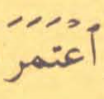 أَعْتَمَرَ